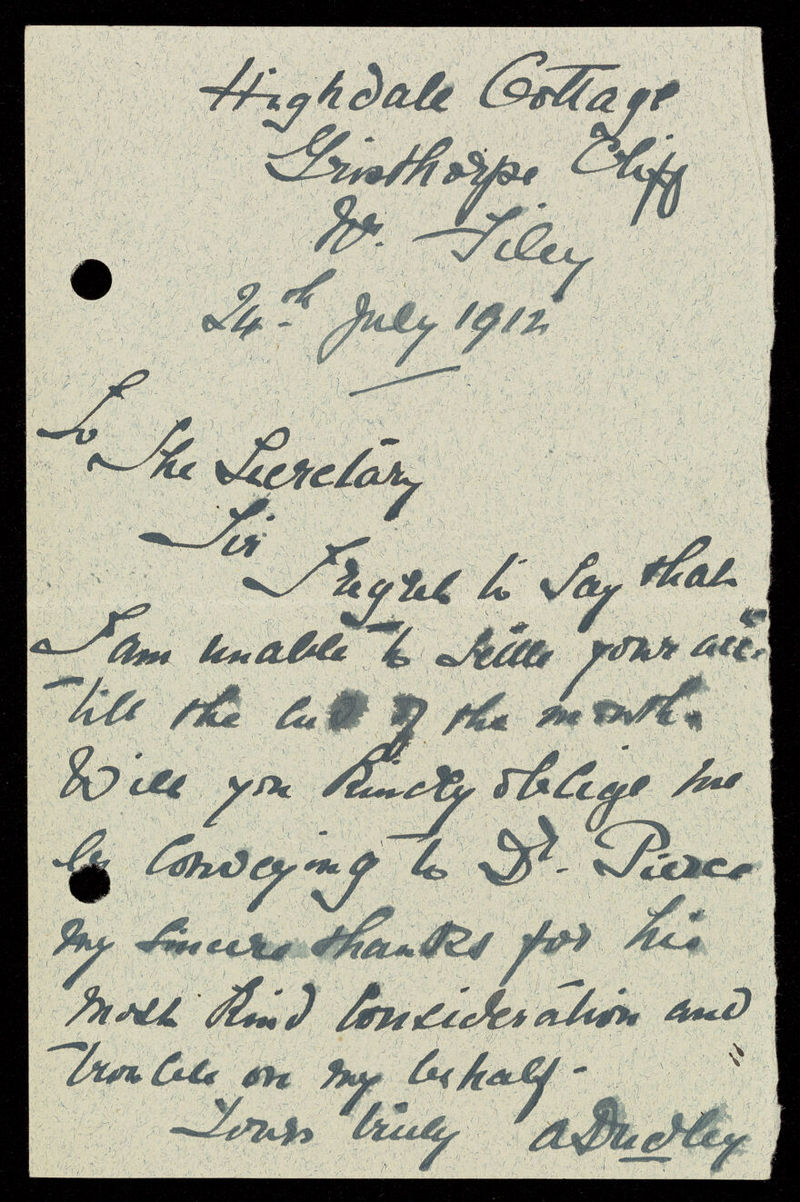 Highdale Cottage
Gristhorpe Cliff
Nr. Filey
24th July 1912
To
The Secretary
Sir
I regret to say that
I am unable to settle your acc:
till the end of the month.
Will you kindly oblige me
by conveying to Dr. Pierce
my sincere thanks for his
most kind consideration and
trouble on my behalf -
Yours truly A Dudley